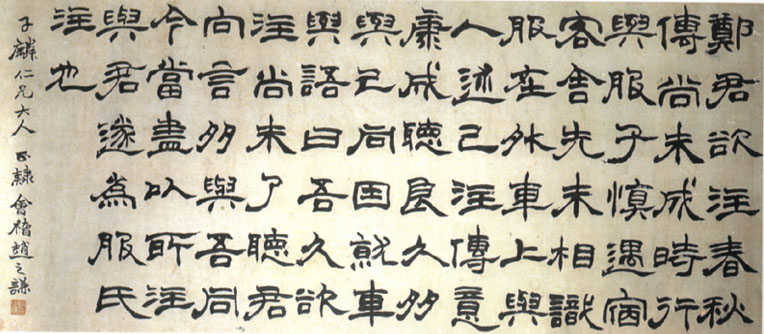 鄭君欲注春秋
傳尚未成時行
與服子慎遇宿
客舍先未相識
服在外車上與
人述己注傳意
康成聽良久多
與己同因就車
與語曰吾久欲
注尚未了聽君
向言多與吾同
今當盡以所注
與君遂為服氏
注也
子麟仁兄大人正隸會稽趙之謙